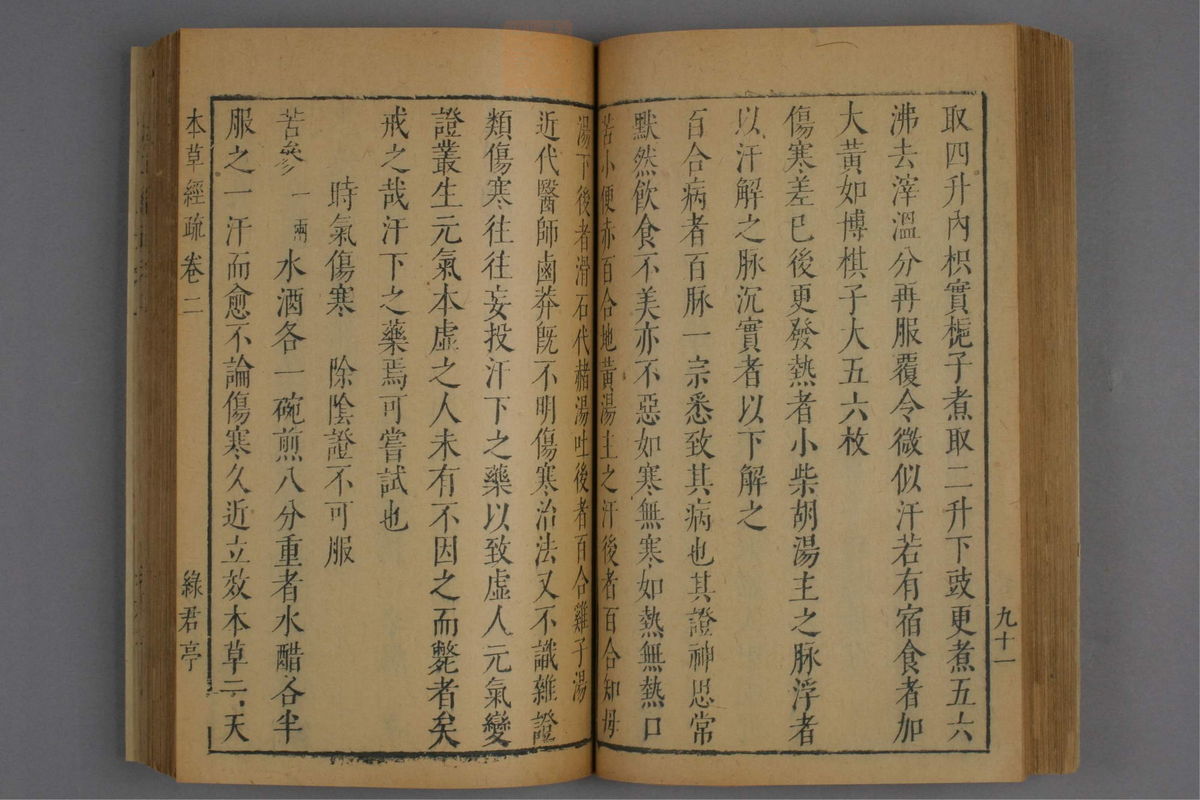 取四升內枳實梔子煮取二升下豉更煮五六
沸去滓溫分再服覆令微似汗若有宿食者加
大黃如博棋子大五六枚
傷寒差已後更發熱者小柴胡湯主之脉浮者
以汗解之脉沉實者以下解之
百合病者百脉一宗悉致其病也其證神思常
默然飲食不美亦不惡如寒無寒如熱無熱口
苦小便赤百合地黃湯主之汗後者百合知母
湯下後者滑石代赭湯吐後者百合雞子湯
近代醫師鹵莽旣不明傷寒治法又不識雜證
類傷寒往往妄投汗下之藥以致虛人元氣變
證叢生元氣本虛之人未有不因之而斃者矣
戒之哉汗下之藥焉可嘗試也
時氣傷寒　除陰證不可服
苦參一兩水酒各一碗煎八分重者水醋各半
服之一汗而愈不論傷寒久近立效本草云天
本草經疏卷二
綠君亭
九十一